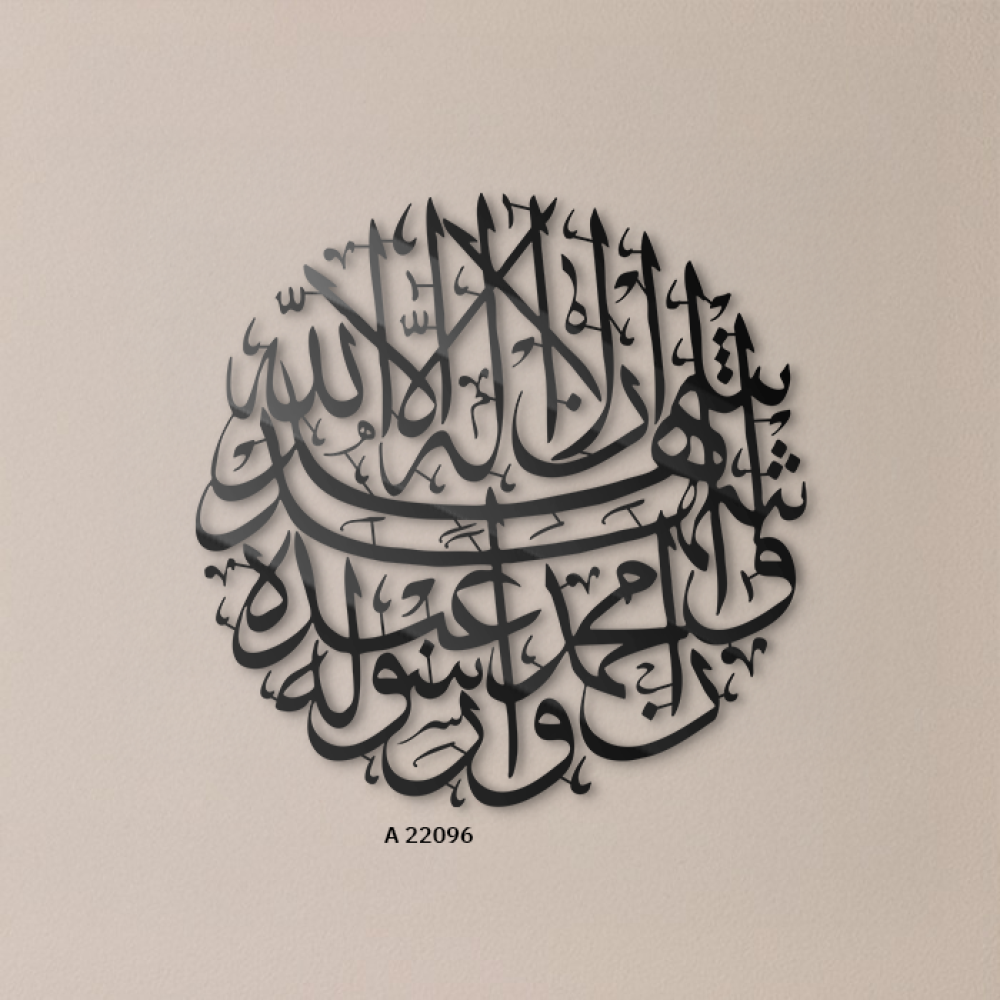 اشهد ان لا اله الا الله
واشهد ان محمدا عبده ورسوله
A 22096